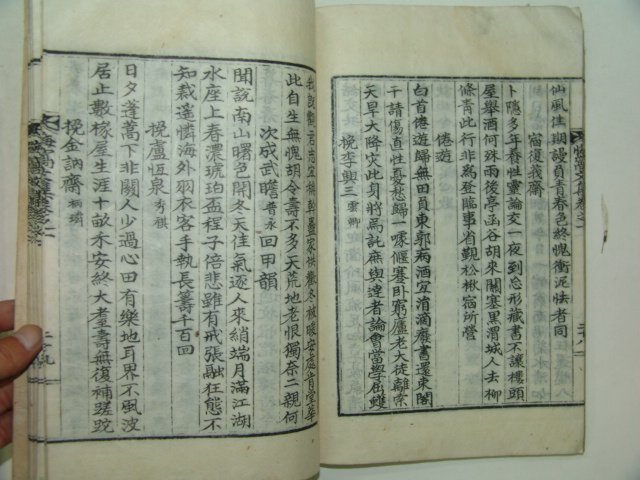 仙風佳期謾負青春色終愧衝泥怯者同
宿復我齋
卜隱多年養性靈論交一夜到忘形藏書不讓樓頭
屋舉酒何殊雨後亭函谷胡來關塞黑渭城人去柳
條青此行非爲登臨事省觀松楸宿所營
倦遊
白首倦遊歸無田負東郭病酒宜消滴廢書還束閣
干請傷直性喜怒歸一噱偃蹇臥窮廬老大徒離索
天旱大降灾此身將焉託庶與達者論會當學屈蠖
挽李興三
此自生無愧胡令壽不多天荒地老恨獨奈二親何
次成武瞻 回甲韻
聞說南山曙色開冬天佳氣逐人來綃端月滿江湖
水座上春濃琥珀盃程子倍悲雖有戒張融狂態不
知裁遙憐海外羽衣客手執長籌千百回
挽盧恆泉
日夕蓬蒿下非關人少過心田有樂地耳界不風波
居止數椽屋生涯十畝禾安終大耋壽無復補蹉跎
挽金訥齋